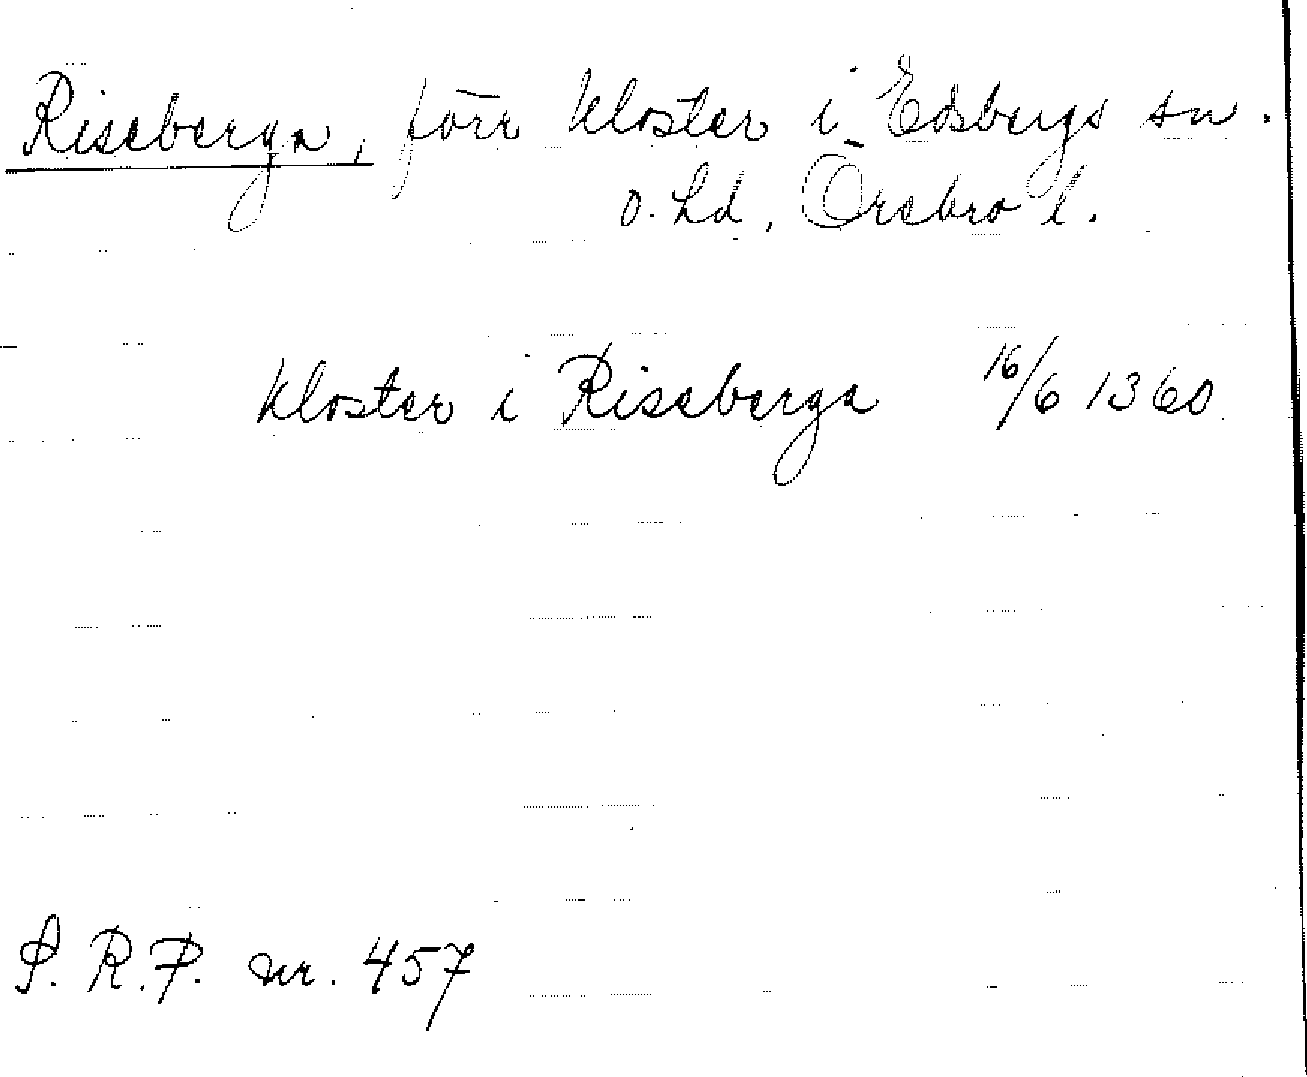 Riseberga, förr kloster i Edsbergs sn.
o. hd, Örebro l.
kloster i Riseberga 16/6 1360
S. R. P. nr. 457